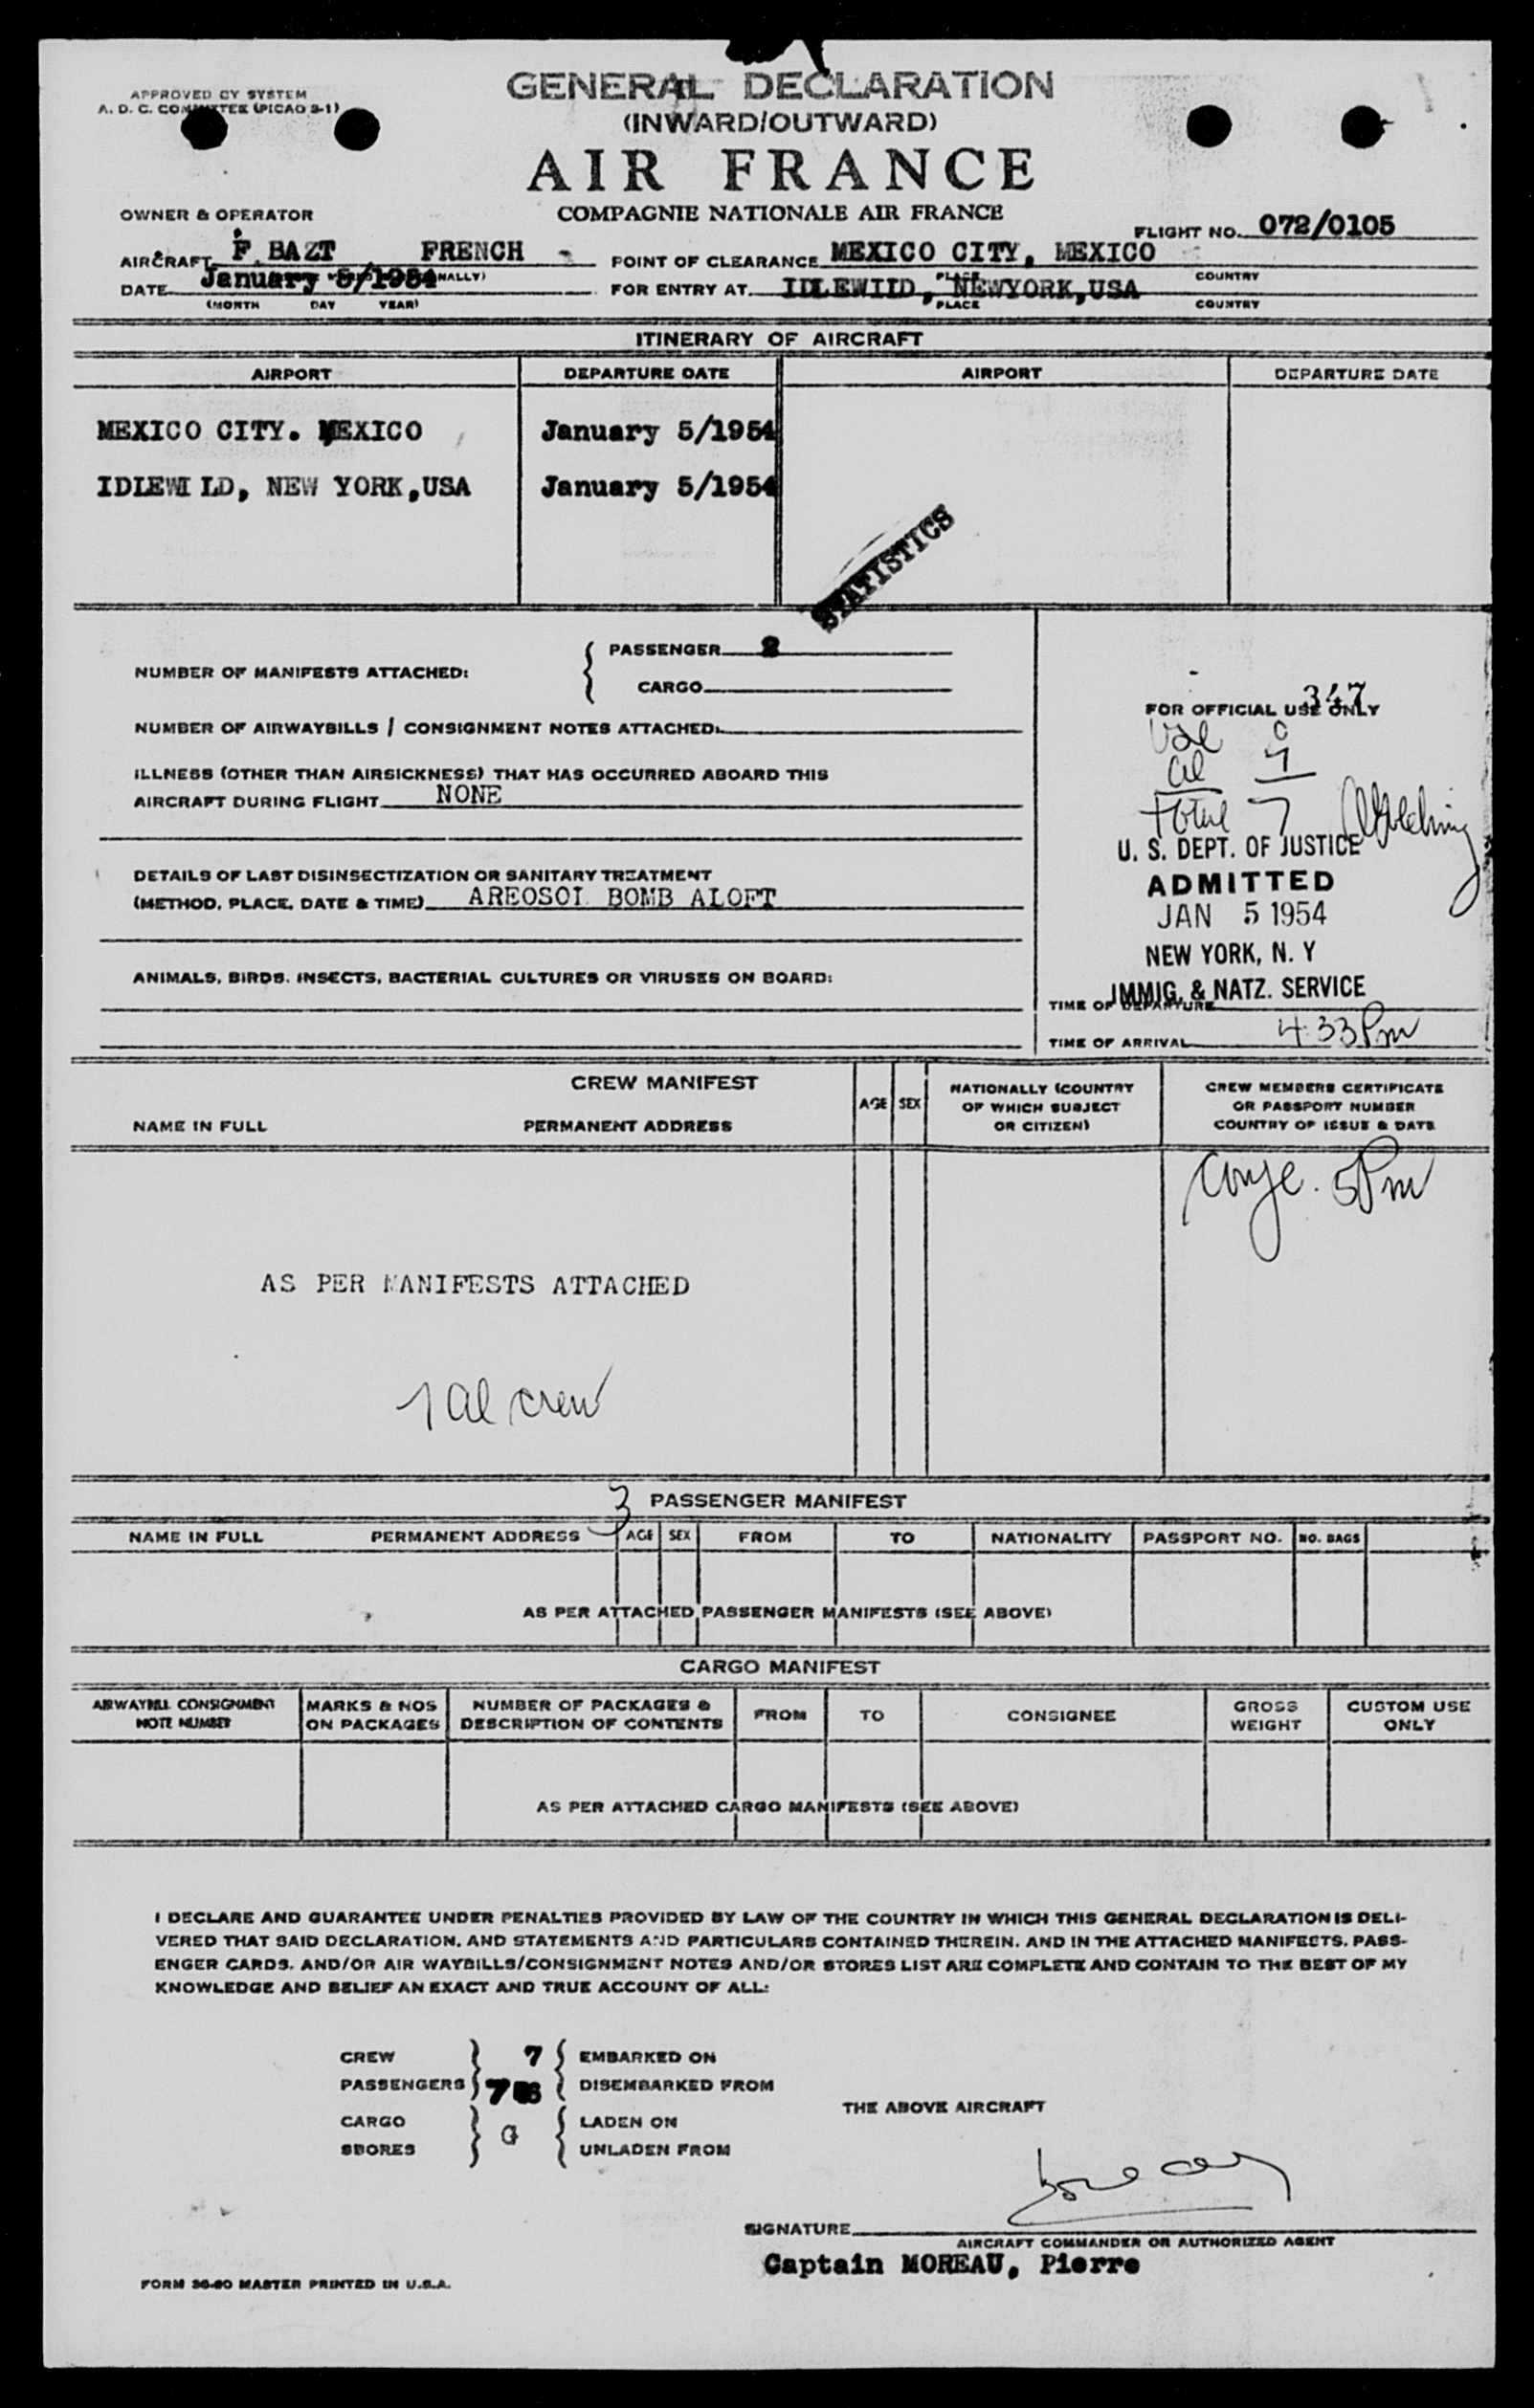 APPROVED BY SYSTEM
A. D. C. COMMITTEE (PICAO 2-1)
GENERAL DECLARATION
(INWARD/OUTWARD)
AIR FRANCE
COMPAGNIE NATIONALE AIR FRANCE
OWNER & OPERATOR
FLIGHT NO. 072/0105
AIRCRAFT F BAZT FRENCH
POINT OF CLEARANCE MEXICO CITY, MEXICO
PLACE COUNTRY
DATE January 5/1954
(MONTH DAY YEAR)
FOR ENTRY AT IDLEWILD, NEWYORK,USA
PLACE COUNTRY
ITINERARY OF AIRCRAFT
AIRPORT DEPARTURE DATE AIRPORT DEPARTURE DATE
MEXICO CITY. MEXICO January 5/1954
IDLEWILD, NEW YORK,USA January 5/1954
STATISTICS
NUMBER OF MANIFESTS ATTACHED:
PASSENGER 2
CARGO
NUMBER OF AIRWAYBILLS / CONSIGNMENT NOTES ATTACHED:
ILLNESS (OTHER THAN AIRSICKNESS) THAT HAS OCCURRED ABOARD THIS
AIRCRAFT DURING FLIGHT NONE
DETAILS OF LAST DISINSECTIZATION OR SANITARY TREATMENT
(METHOD, PLACE, DATE & TIME) AREOSOL BOMB ALOFT
ANIMALS, BIRDS, INSECTS, BACTERIAL CULTURES OR VIRUSES ON BOARD:
347
FOR OFFICIAL USE ONLY
USC 0
al 7
Total 7
U. S. DEPT. OF JUSTICE
ADMITTED
JAN 5 1954
NEW YORK, N. Y
IMMIG. & NATZ. SERVICE
TIME OF DEPARTURE
TIME OF ARRIVAL 4:33 Pm
CREW MANIFEST
NAME IN FULL PERMANENT ADDRESS
AGE SEX
NATIONALLY (COUNTRY
OF WHICH SUBJECT
OR CITIZEN)
CREW MEMBERS CERTIFICATE
OR PASSPORT NUMBER
COUNTRY OF ISSUE & DATE
5 Pm
AS PER MANIFESTS ATTACHED
7 al crew
3
PASSENGER MANIFEST
NAME IN FULL PERMANENT ADDRESS AGE SEX FROM TO NATIONALITY PASSPORT NO. NO. BAGS
AS PER ATTACHED PASSENGER MANIFESTS (SEE ABOVE)
CARGO MANIFEST
AIRWAYBILL CONSIGNMENT
NOTE NUMBER
MARKS & NOS
ON PACKAGES
NUMBER OF PACKAGES &
DESCRIPTION OF CONTENTS
FROM TO CONSIGNEE
GROSS
WEIGHT
CUSTOM USE
ONLY
AS PER ATTACHED CARGO MANIFESTS (SEE ABOVE)
I DECLARE AND GUARANTEE UNDER PENALTIES PROVIDED BY LAW OF THE COUNTRY IN WHICH THIS GENERAL DECLARATION IS DELI-
VERED THAT SAID DECLARATION, AND STATEMENTS AND PARTICULARS CONTAINED THEREIN, AND IN THE ATTACHED MANIFESTS, PASS-
ENGER CARDS, AND/OR AIR WAYBILLS/CONSIGNMENT NOTES AND/OR STORES LIST ARE COMPLETE AND CONTAIN TO THE BEST OF MY
KNOWLEDGE AND BELIEF AN EXACT AND TRUE ACCOUNT OF ALL:
CREW 7 EMBARKED ON
PASSENGERS DISEMBARKED FROM
THE ABOVE AIRCRAFT
CARGO LADEN ON
SBORES UNLADEN FROM
SIGNATURE
AIRCRAFT COMMANDER OR AUTHORIZED AGENT
Captain MOREAU, Pierre
FORM 36-60 MASTER PRINTED IN U.S.A.